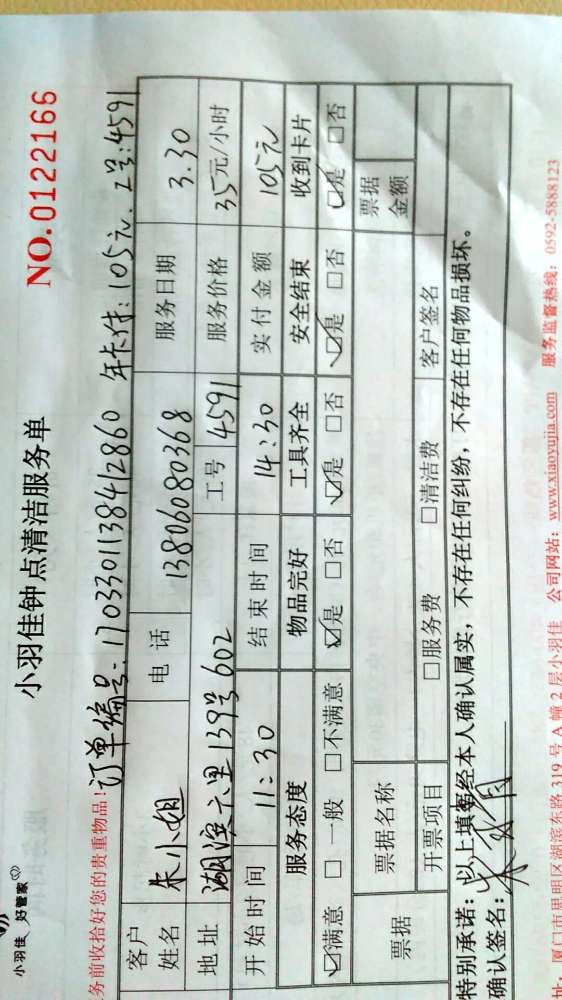 小羽佳 好管家
小羽佳钟点清洁服务单
NO.0122166
务前收拾好您的贵重物品! 订单编号:1703301138412860 年卡付:105元.工号:4591
客户姓名 朱小姐 电话 13806080368 服务日期 3.30
地址 湖滨六里139号602 工号 4591 服务价格 35元/小时
开始时间 11:30 结束时间 14:30 实付金额 105元
服务态度 物品完好 工具齐全 安全结束 收到卡片
☑满意 □一般 □不满意 ☑是 □否 ☑是 □否 ☑是 □否 ☑是 □否
票据 票据名称 票据金额
开票项目 □服务费 □清洁费 客户签名
特别承诺:以上填写经本人确认属实,不存在任何纠纷,不存在任何物品损坏。
确认签名:
址:厦门市思明区湖滨东路 319 号 A 幢 2 层小羽佳 公司网站:www.xiaoyujia.com 服务监督热线:0592-5888123